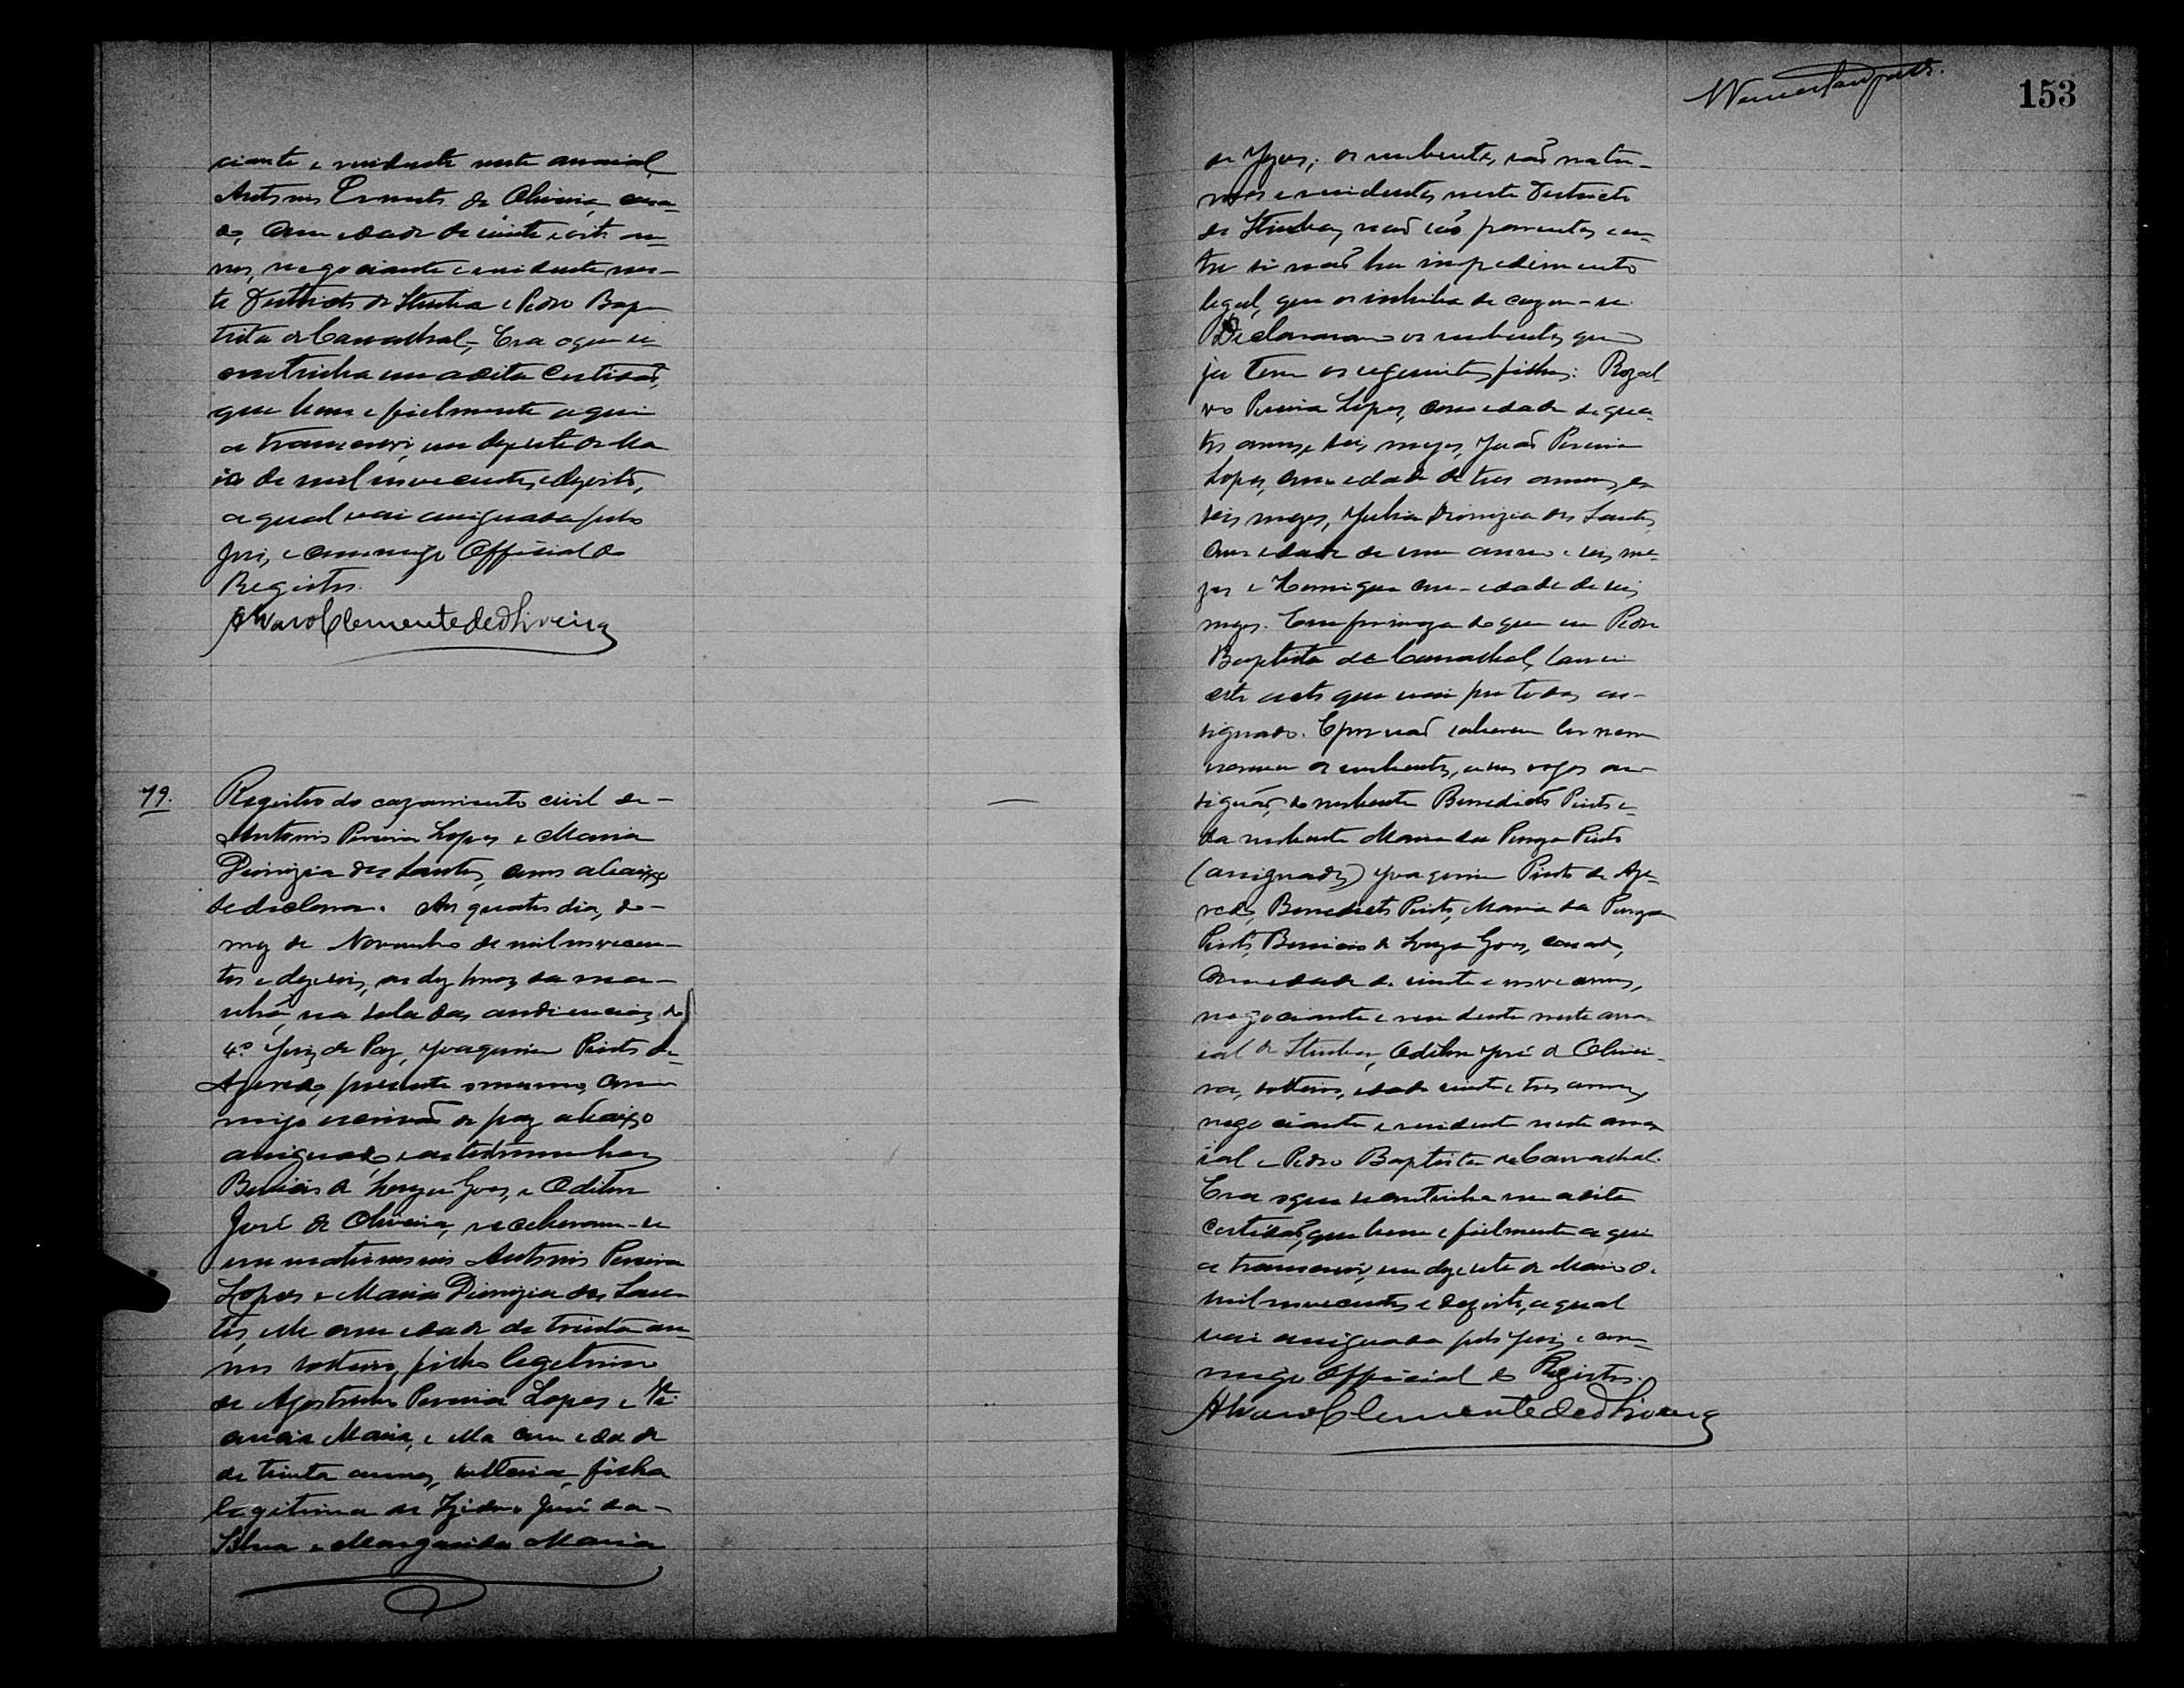 ciante e residente neste arraial,
Antonio Ernesto de Oliveira, casa-
do, com edade de vinte e oito an-
nos, negociante e residente nes-
te Districto de Itinha e Pedro Bap
tista de Carvalhal, Era o que se
continha em a dita Certidaõ,
que bem e fielmente aqui
a transcrevi, em dezesete de Ma
io de mil novecentos e dezoito,
a qual vai assignada pelo
Juiz, e commigo Official do
Registro.
Alvaro Clemente de Oliveira
79.
Registro do cazamento civil de-
Antonio Pereira Lopes e Maria
Dionizia dos Santos, como abaixo
se declara. Aos quatro dias do-
mez de Novembro de mil novecen-
tos e dezeseis, as dez horas da ma-
nhã, na sala das audiencias do
4º Juiz de Paz, Joaquim Pinto de
Azeredo, presente o mesmo, com-
migo escrivaõ de paz abaixo
assignado e as testemunhas
Benicio de Souza Goes, e Odilon
José de Oliveira, receberam-se
em matrimonio Antonio Pereira
Lopes e Maria Dionizia dos San-
tos, elle com edade de trinta an-
nos solteiro, filho legitimo
de Agostinho Pereira Lopes e
Maria, e ella com edade
de trinta annos, solteira, filha
legitima de Izidro José da-
Silva e Margarida Maria
153
de Jezus; os nubentes, saõ natu-
raes e residentes neste Districto
de Itinha, naõ saõ parentes en-
tre si naõ ha impedimento
legal, que os inhiba de cazar-se.
Declararam os nubentes que
ja tem os seguintes filhos: Rozal
vo Pereira Lopes, com edade de qua-
tro annos e seis mezes, Joaõ Pereira
Lopes, com edade de tres annos e
seis mezes, Julia Dionizia dos Santos,
com edade de um anno e seis me-
zes e Henrique com edade de seis
mezes. Em firmeza do que eu Pedro
Baptista de Carvalhal, lavrei
este acto que vai por todos as-
signado. E por naõ saberem ler nem
escrever os nubentes, a seus rogos as-
signaõ, do nubente Benedicto Pinto e
da nubente Maria da Pureza Pinto
(assignados) Joaquim Pinto de Aze-
redo, Benedicto Pinto, Maria da Pureza
Pinto, Benicio de Souza Goes, casado,
com edade de vinte e nove annos,
negociante e residente neste arra-
ial de Itinha, Odilon José de Olivei-
ra, solteiro, edade vinte e tres annos,
negociante e residente neste arra
ial e Pedro Baptista de Carvalhal.
Era o que se continha em a dita
certidaõ, que bem e fielmente aqui
a transcrevi, em dezesete de Maio de
mil novecentos e dezoito, a qual
vai assignada pelo Juiz, e com-
migo Official do Registro.
Alvaro Clemente de Oliveira